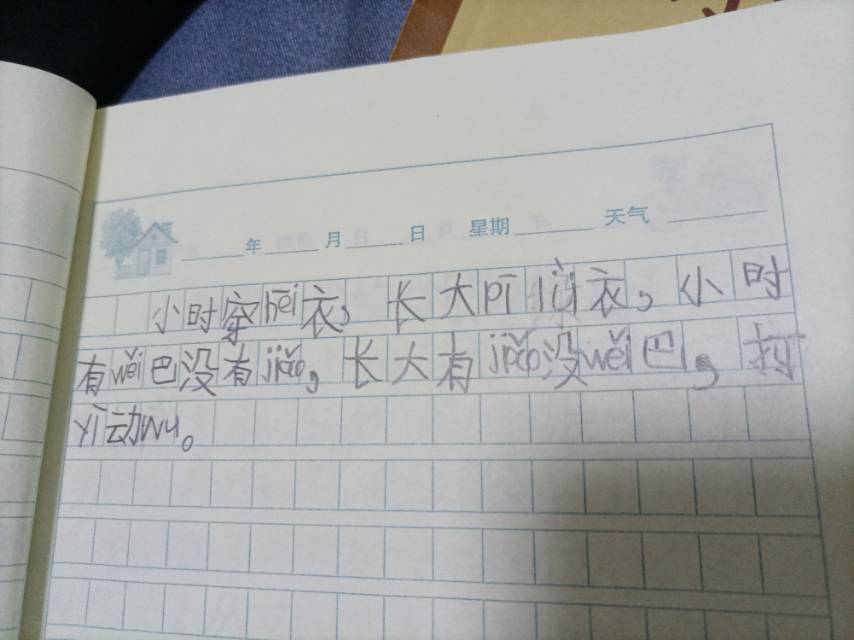 年 月 日 星期 天气
小时穿hēi衣,长大pī lǜ衣,小时
有wěi巴没有jiǎo,长大有jiǎo没wěi巴,打
yī动wu。